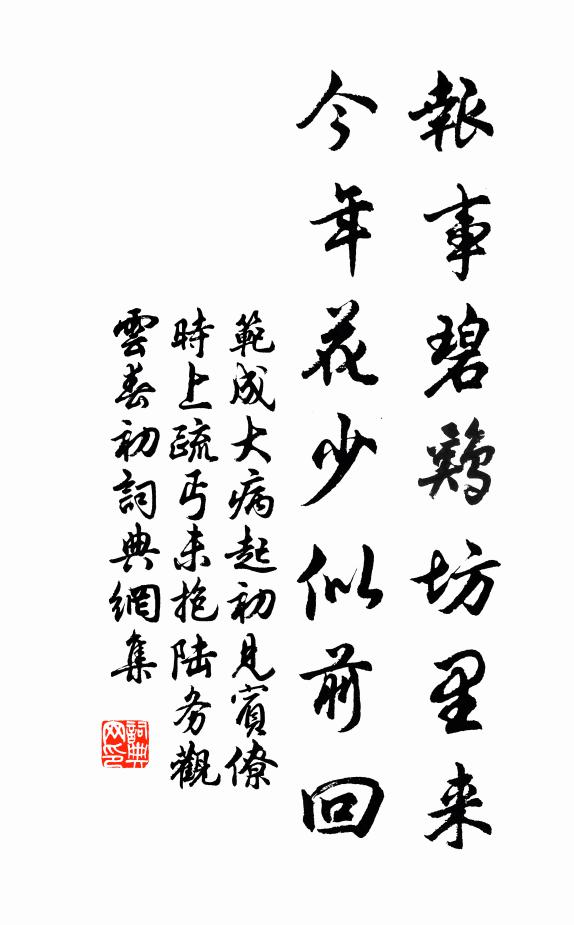 報事碧鷄坊里来
今年花少似前回
範成大病起初見賓僚
時上疏丐未抱陆务觀
雲春初詞典網集
詞典網印